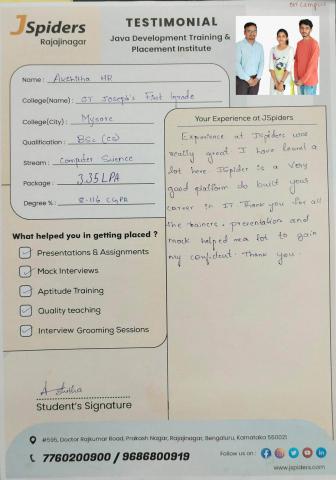 on campus
JSpiders
Rajajinagar
TESTIMONIAL
Java Development Training &
Placement Institute
Name : HR
College(Name) : ST Joseph's First Grade
College(City) : Mysore
Qualification : BSc (CS)
Stream : Computer Science
Package : 3.35 LPA
Degree % : 8.116 CGPA
What helped you in getting placed ?
Presentations & Assignments
Mock Interviews
Aptitude Training
Quality teaching
Interview Grooming Sessions
Your Experience at JSpiders
Experience at JSpiders was
really great I have learnt a
lot here JSpider is a very
good platform do build your
career in IT Thank you for all
the trainers. presentation and
mock helped mea lot to gain
my confident. Thank you.
Student's Signature
#595, Doctor Rajkumar Road, Prakash Nagar, Rajajinagar, Bengaluru, Karnataka 560021
7760200900 / 9686800919
Follow us on :
www.jspiders.com